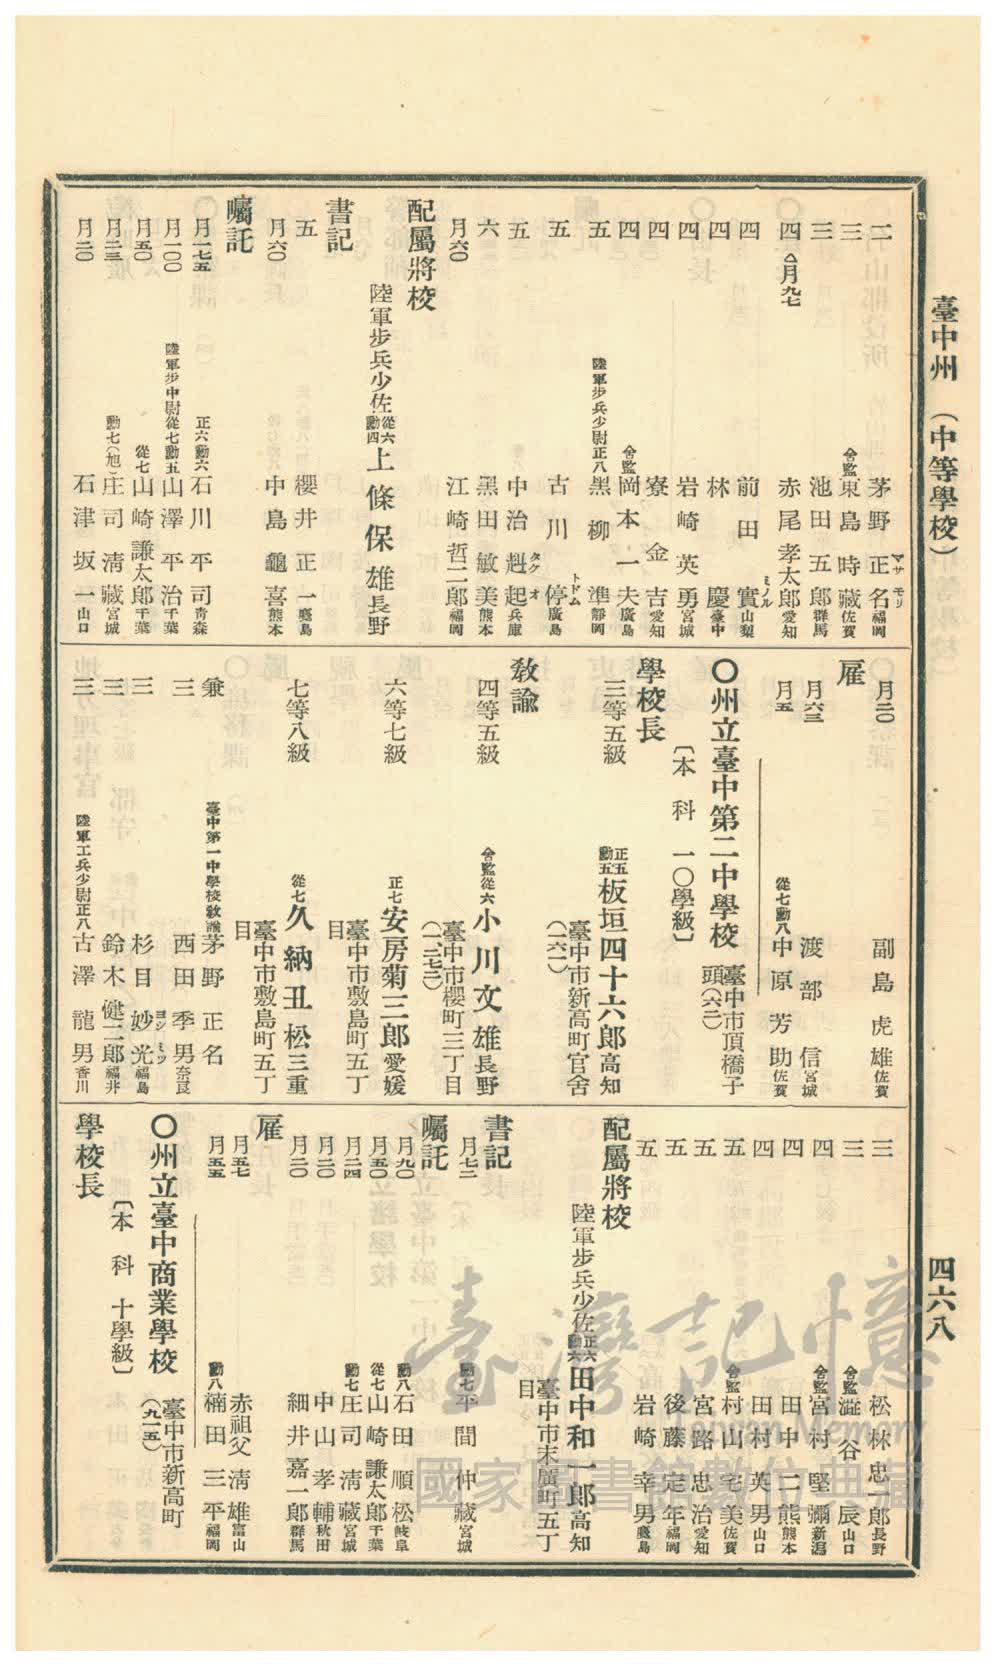 臺中州 (中等學校) 四六八
二 茅野正名 マサモリ 福岡
三 舍監 東島時藏 佐賀
三 池田五郎 群馬
四 △月九七 赤尾孝太郎 愛知
四 前田實 ミノル 山梨
四 林慶 臺中
四 岩崎英勇 宮城
四 寮金吉 愛知
四 舍監 岡本一夫 廣島
五 陸軍步兵少尉正八 黑柳準 靜岡
五 古川停 トドム 廣島
五 中治起 タケオ 兵庫
六 黑田敏美 熊本
月六〇 江崎哲二郎 福岡
配屬將校
陸軍步兵少佐 從六勳四 上條保雄 長野
書記
五 櫻井正一 廣島
月六〇 中島龜喜 熊本
囑託
月一七五 正六勳六 石川平司 青森
月一〇〇 陸軍步中尉從七勳五 山澤平治 千葉
月五〇 從七 山崎謙太郎 千葉
月二三 勳七(旭) 庄司清藏 宮城
月二〇 石津坂一 山口
月二〇 副島虎雄 佐賀
雇
月六三 渡部信 宮城
月五 從七勳八 中原芳助 佐賀
〇州立臺中第二中學校 臺中市頂橋子頭(六二)
〔本科 一〇學級〕
學校長
三等五級 正五勳五 板垣四十六郎 高知
臺中市新高町官舍
(一六一)
敎諭
四等五級 舍監從六 小川文雄 長野
臺中市櫻町三丁目
(一二七二)
六等七級 正七 安房菊三郎 愛媛
臺中市敷島町五丁目
七等八級 從七 久納丑松 三重
臺中市敷島町五丁目
兼 臺中第一中學校敎諭 茅野正名
三 西田季男 奈良
三 杉目妙光 ヨシミツ 福島
三 鈴木健二郎 福井
三 陸軍工兵少尉正八 古澤龍男 香川
三 松林忠一郎 長野
三 舍監 澁谷辰 山口
四 舍監 宮村堅彌 新潟
四 田中二熊 熊本
四 田村英男 山口
五 舍監 村山宅美 佐賀
五 宮路忠治 愛知
五 後藤定年 福岡
五 岩崎幸男 廣島
配屬將校
陸軍步兵少佐 正六勳六 田中和一郎 高知
臺中市末廣町五丁目
書記
月七二 勳七 平間仲藏 宮城
囑託
月九〇 勳八 石田順松 岐阜
月五〇 從七 山崎謙太郎 千葉
月二四 勳七 庄司清藏 宮城
月二〇 中山孝輔 秋田
月二〇 細井嘉一郎 群馬
雇
月五七 赤祖父清雄 富山
月五五 勳八 楠田三平 福岡
〇州立臺中商業學校 臺中市新高町
(九一五)
〔本科 十學級〕
學校長
臺灣記憶
Taiwan Memory
國家圖書館數位典藏